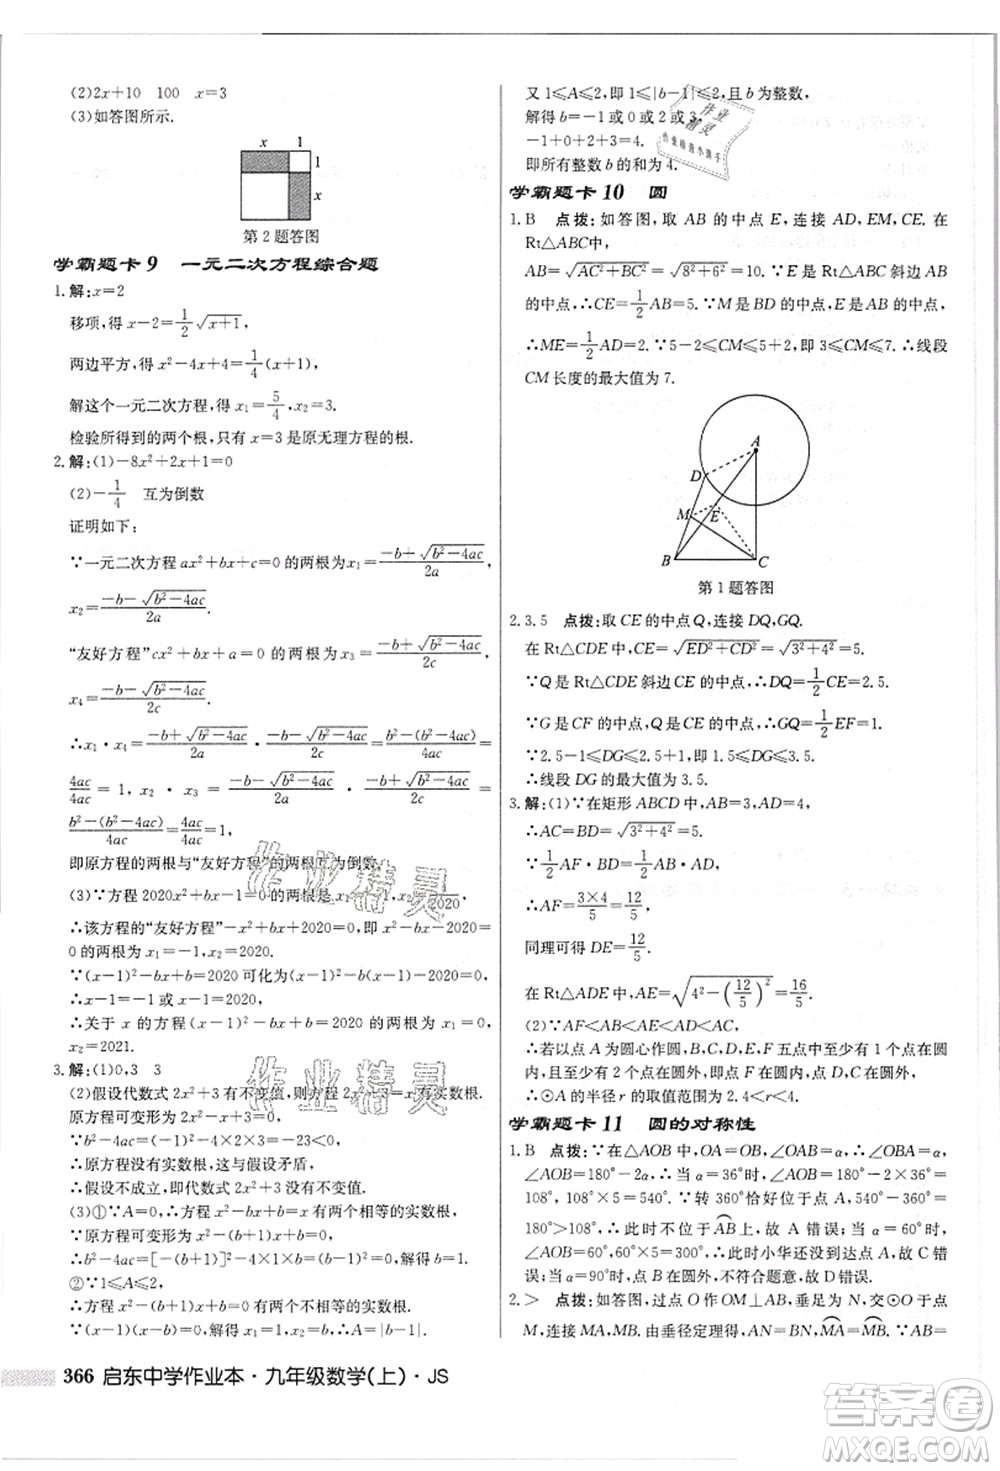 (2)2x+10　100　x=3
(3)如答图所示.
x　1
1
x
第2题答图
学霸题卡9　一元二次方程综合题
1.解:x=2
移项,得 x-2=1/2√(x+1),
两边平方,得 x²-4x+4=1/4(x+1),
解这个一元二次方程,得 x₁=5/4,x₂=3.
检验所得到的两个根,只有 x=3是原无理方程的根.
2.解:(1)-8x²+2x+1=0
(2)-1/4　互为倒数
证明如下:
∵一元二次方程 ax²+bx+c=0的两根为 x₁=(-b+√(b²-4ac))/2a,
x₂=(-b-√(b²-4ac))/2a.
“友好方程”cx²+bx+a=0的两根为 x₃=(-b+√(b²-4ac))/2c,
x₄=(-b-√(b²-4ac))/2c.
∴x₁·x₄=(-b+√(b²-4ac))/2a·(-b-√(b²-4ac))/2c=(b²-(b²-4ac))/4ac=
4ac/4ac=1, x₂·x₃=(-b-√(b²-4ac))/2a·(-b+√(b²-4ac))/2c=
(b²-(b²-4ac))/4ac=4ac/4ac=1,
即原方程的两根与“友好方程”的两根互为倒数.
(3)∵方程 2020x²+bx-1=0的两根是 x₁=-1,x₂=1/2020,
∴该方程的“友好方程”-x²+bx+2020=0,即 x²-bx-2020=0的两根为 x₁=-1,x₂=2020.
∵(x-1)²-bx+b=2020可化为(x-1)²-b(x-1)-2020=0,
∴x-1=-1或 x-1=2020,
∴关于 x 的方程(x-1)²-bx+b=2020的两根为 x₁=0,
x₂=2021.
3.解:(1)0,3　3
(2)假设代数式 2x²+3有不变值,则方程 2x²+3=x有解.
原方程可变形为2x²-x+3=0.
∵b²-4ac=(-1)²-4×2×3=-23<0,
∴该方程无解,
∴假设不成立,即代数式 2x²+3没有不变值.
(3)①∵A=0,∴方程 x²-bx=x有两个相等的实数根,
∵原方程可变形为 x²-(b+1)x=0,
∴b²-4ac=[-(b+1)]²-4×1×0=0,∴b=-1.
②∵1⩽A⩽2,
∴方程 x²-(b+1)x+b=0有两个不相等的实数根.
∵(x-b)(x-1)=0,解得 x₁=b,x₂=1,∴A=|b-1|.
又1⩽A⩽2,即1⩽|b-1|⩽2,且 b 为整数,
解得 b=-1或0或2或3,
-1+0+2+3=4.
即所有整数 b 的和为4.
学霸题卡10　圆
1.B　点拨:如答图,取 AB 的中点 E,连接 AD,EM,CE.在
Rt△ABC中,
AB=√(AC²+BC²)=√(8²+6²)=10.∵E 是 Rt△ABC 斜边
上的中点,∴CE=1/2AB=5.∵M 是 BD 的中点,E是 AB 的中点,
∴ME=1/2AD=2.∵5-2⩽CM⩽5+2,即3⩽CM⩽7.∴线段
CM 长度的最大值为7.
A
D
M
E
B
C
第1题答图
2.3.5　点拨:取 CE 的中点 Q,连接 DQ,GQ.
在 Rt△CDE中,CE=√(ED²+CD²)=√(3²+4²)=5.
∵Q 是 Rt△CDE 斜边 CE 的中点,∴DQ=1/2CE=2.5.
∵G 是 CF 的中点,Q是 CE 的中点,∴GQ=1/2EF=1.
∵2.5-1⩽DG⩽2.5+1,即1.5⩽DG⩽3.5.
∴线段 DG 的最大值为3.5.
3.解:(1)∵在矩形 ABCD 中,AB=3,AD=4,
∴AC=BD=√(3²+4²)=5.
∵1/2AF·BD=1/2AB·AD,
∴AF=(3×4)/5=12/5,
同理可得 DE=12/5.
在 Rt△ADE 中,AE=√(4²-(12/5)²)=16/5
(2)∵AF<AB<AE<AD<AC,
∴若以点 A 为圆心作圆,B,C,D,E,F五点中至少有1个点在圆
内,且至少有2个点在圆外,
∴⊙A 的半径 r 的取值范围为2.4<r<4.
学霸题卡11　圆的对称性
1.B　点拨:∵在△AOB中,OA=OB,∠OAB=α,∴∠OBA=α.
∠AOB=180°-2α.∴当 α=36°时,∠AOB=180°-2×36°=
108°,108°×5=540°.∵转360°恰好经过点 B,540°-360°=
180°>108°,∴此时不位于AB上,故 A 错误;当 α=60°时,
∠AOB=60°,60°×5=300°.∴此时小华还在途中,故 C
错误;当 α=90°时,点 B 在圆外,不符合题意,故 D 错误.
2.>　点拨:如答图,过点 O 作 OM⊥AB,垂足为 N,交⊙O 于点
M,连接 AM,BM,由垂径定理得,AN=BN,MA=MB.∵AM+
366 启东中学作业本·九年级数学(上)·JS
作业精灵
作业精灵
作业精灵
作业检查小助手
答案圈
MXQE.COM